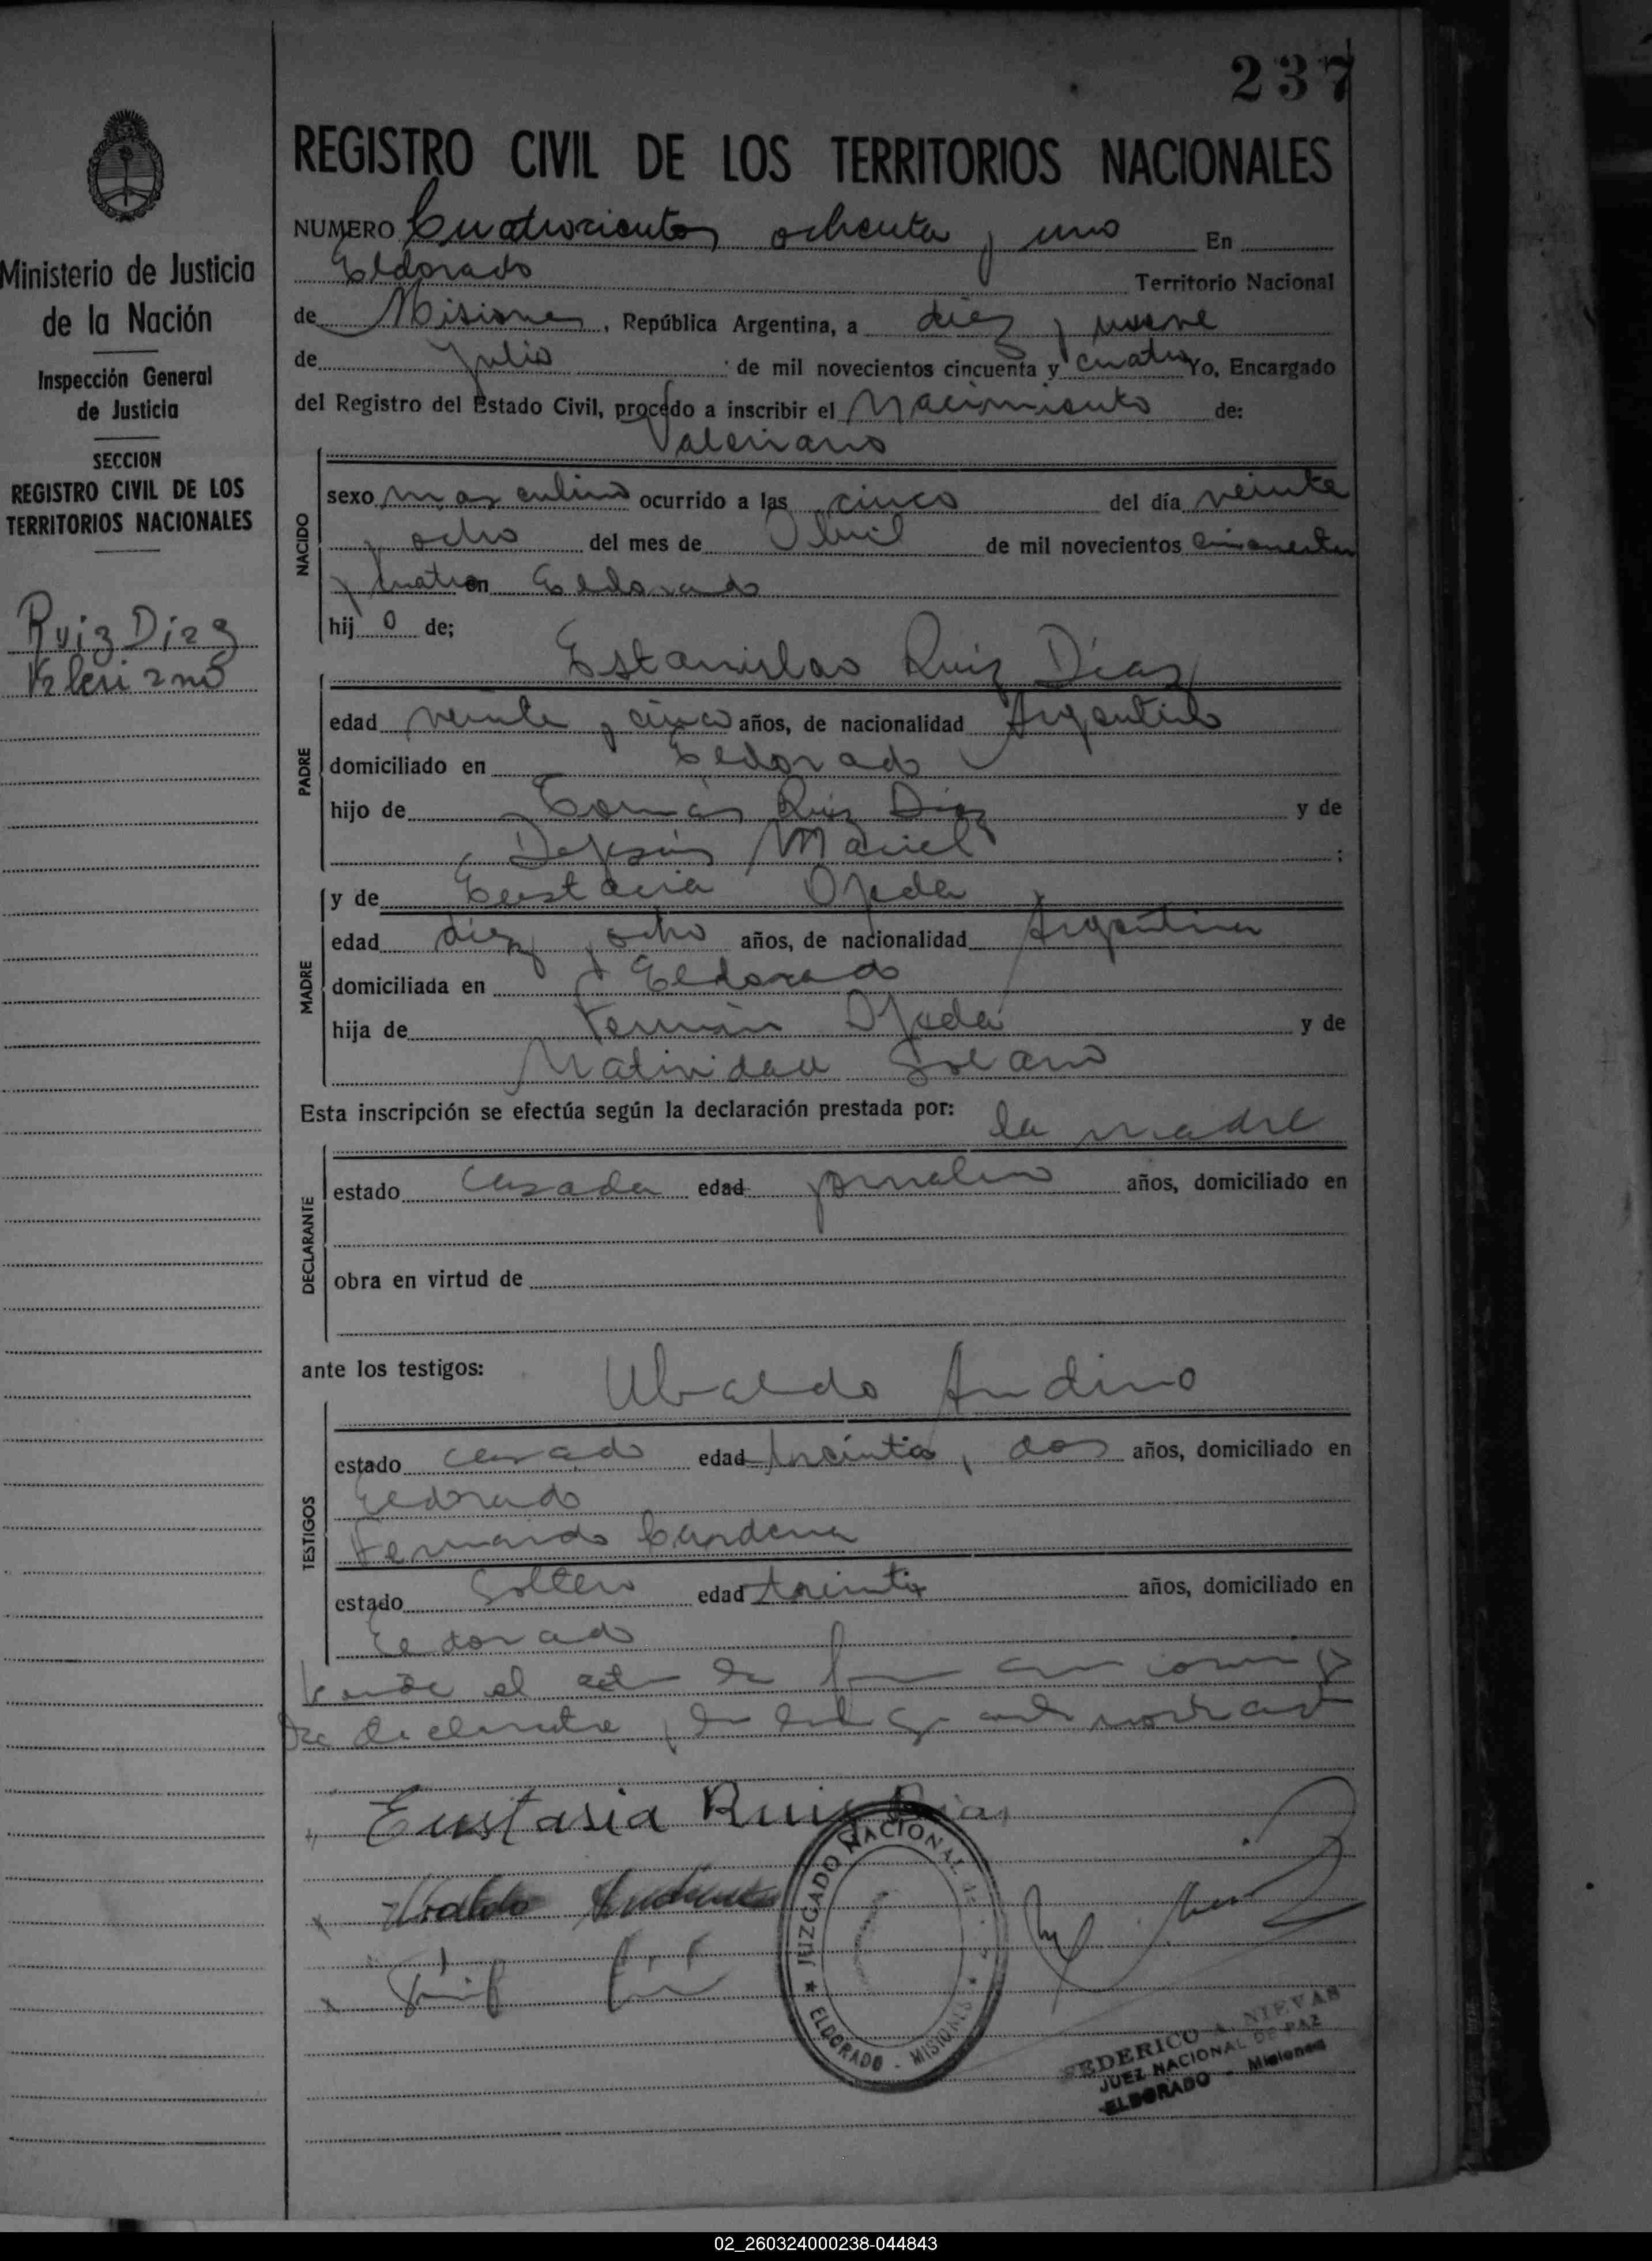 237
REGISTRO CIVIL DE LOS TERRITORIOS NACIONALES
NUMERO Cuatrocientos ochenta y uno En
Eldorado Territorio Nacional
de Misiones, República Argentina, a diez y nueve
de Julio de mil novecientos cincuenta y cuatro Yo, Encargado
del Registro del Estado Civil, procedo a inscribir el Nacimiento de:
Valeriano
NACIDO
sexo masculino ocurrido a las cinco del día veinte
y ocho del mes de Abril de mil novecientos cincuenta
y cuatro en Eldorado
hijo de;
Estanislao Ruiz Díaz
PADRE
edad veinte y cinco años, de nacionalidad Argentino
domiciliado en Eldorado
hijo de Tomás Ruiz Díaz y de
Maciel ;
y de Eustacia Ojeda
MADRE
edad diez y ocho años, de nacionalidad Argentina
domiciliada en Eldorado
hija de Fermín Ojeda y de
Natividad Solano
Esta inscripción se efectúa según la declaración prestada por: la madre
DECLARANTE
estado casada edad jornalero años, domiciliado en
obra en virtud de
ante los testigos:
Ubaldo Andino
TESTIGOS
estado casado edad treinta y dos años, domiciliado en
Eldorado
Fernando
estado Soltero edad treinta años, domiciliado en
Eldorado
el acta
declarante
Eustasia Ruiz Dias
Ubaldo Andino
JUZGADO NACIONAL
ELDORADO - MISIONES
FEDERICO A. NIEVAS
JUEZ NACIONAL DE PAZ
ELDORADO - Misiones
Ministerio de Justicia
de la Nación
Inspección General
de Justicia
SECCION
REGISTRO CIVIL DE LOS
TERRITORIOS NACIONALES
Ruiz Diaz
Valeriano
02_260324000238-044843